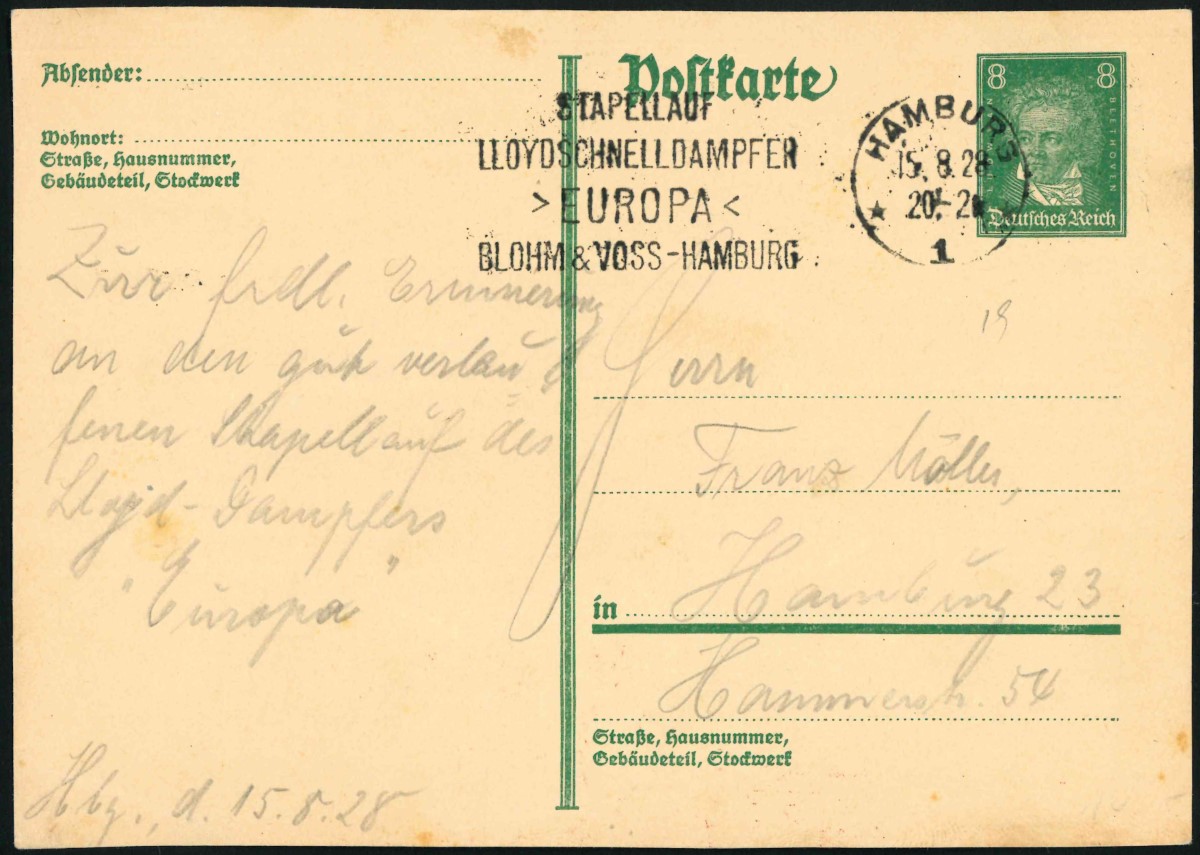 Absender:
Wohnort:
Straße, Hausnummer,
Gebäudeteil, Stockwerk
Postkarte
STAPELLAUF
LLOYDSCHNELLDAMPFER
>EUROPA<
BLOHM & VOSS-HAMBURG
HAMBURG
15.8.28
20-
★
1
8 8
BEETHOVEN
Deutsches Reich
19
Zur frdl. Erinnerung
an den gut verlau
fenen Stapellauf des
Lloyd-Dampfers
"Europa"
Hbg., d. 15.8.28
Herrn
Franz Möller,
in Hamburg 23
Hammerstr. 54
Straße, Hausnummer,
Gebäudeteil, Stockwerk